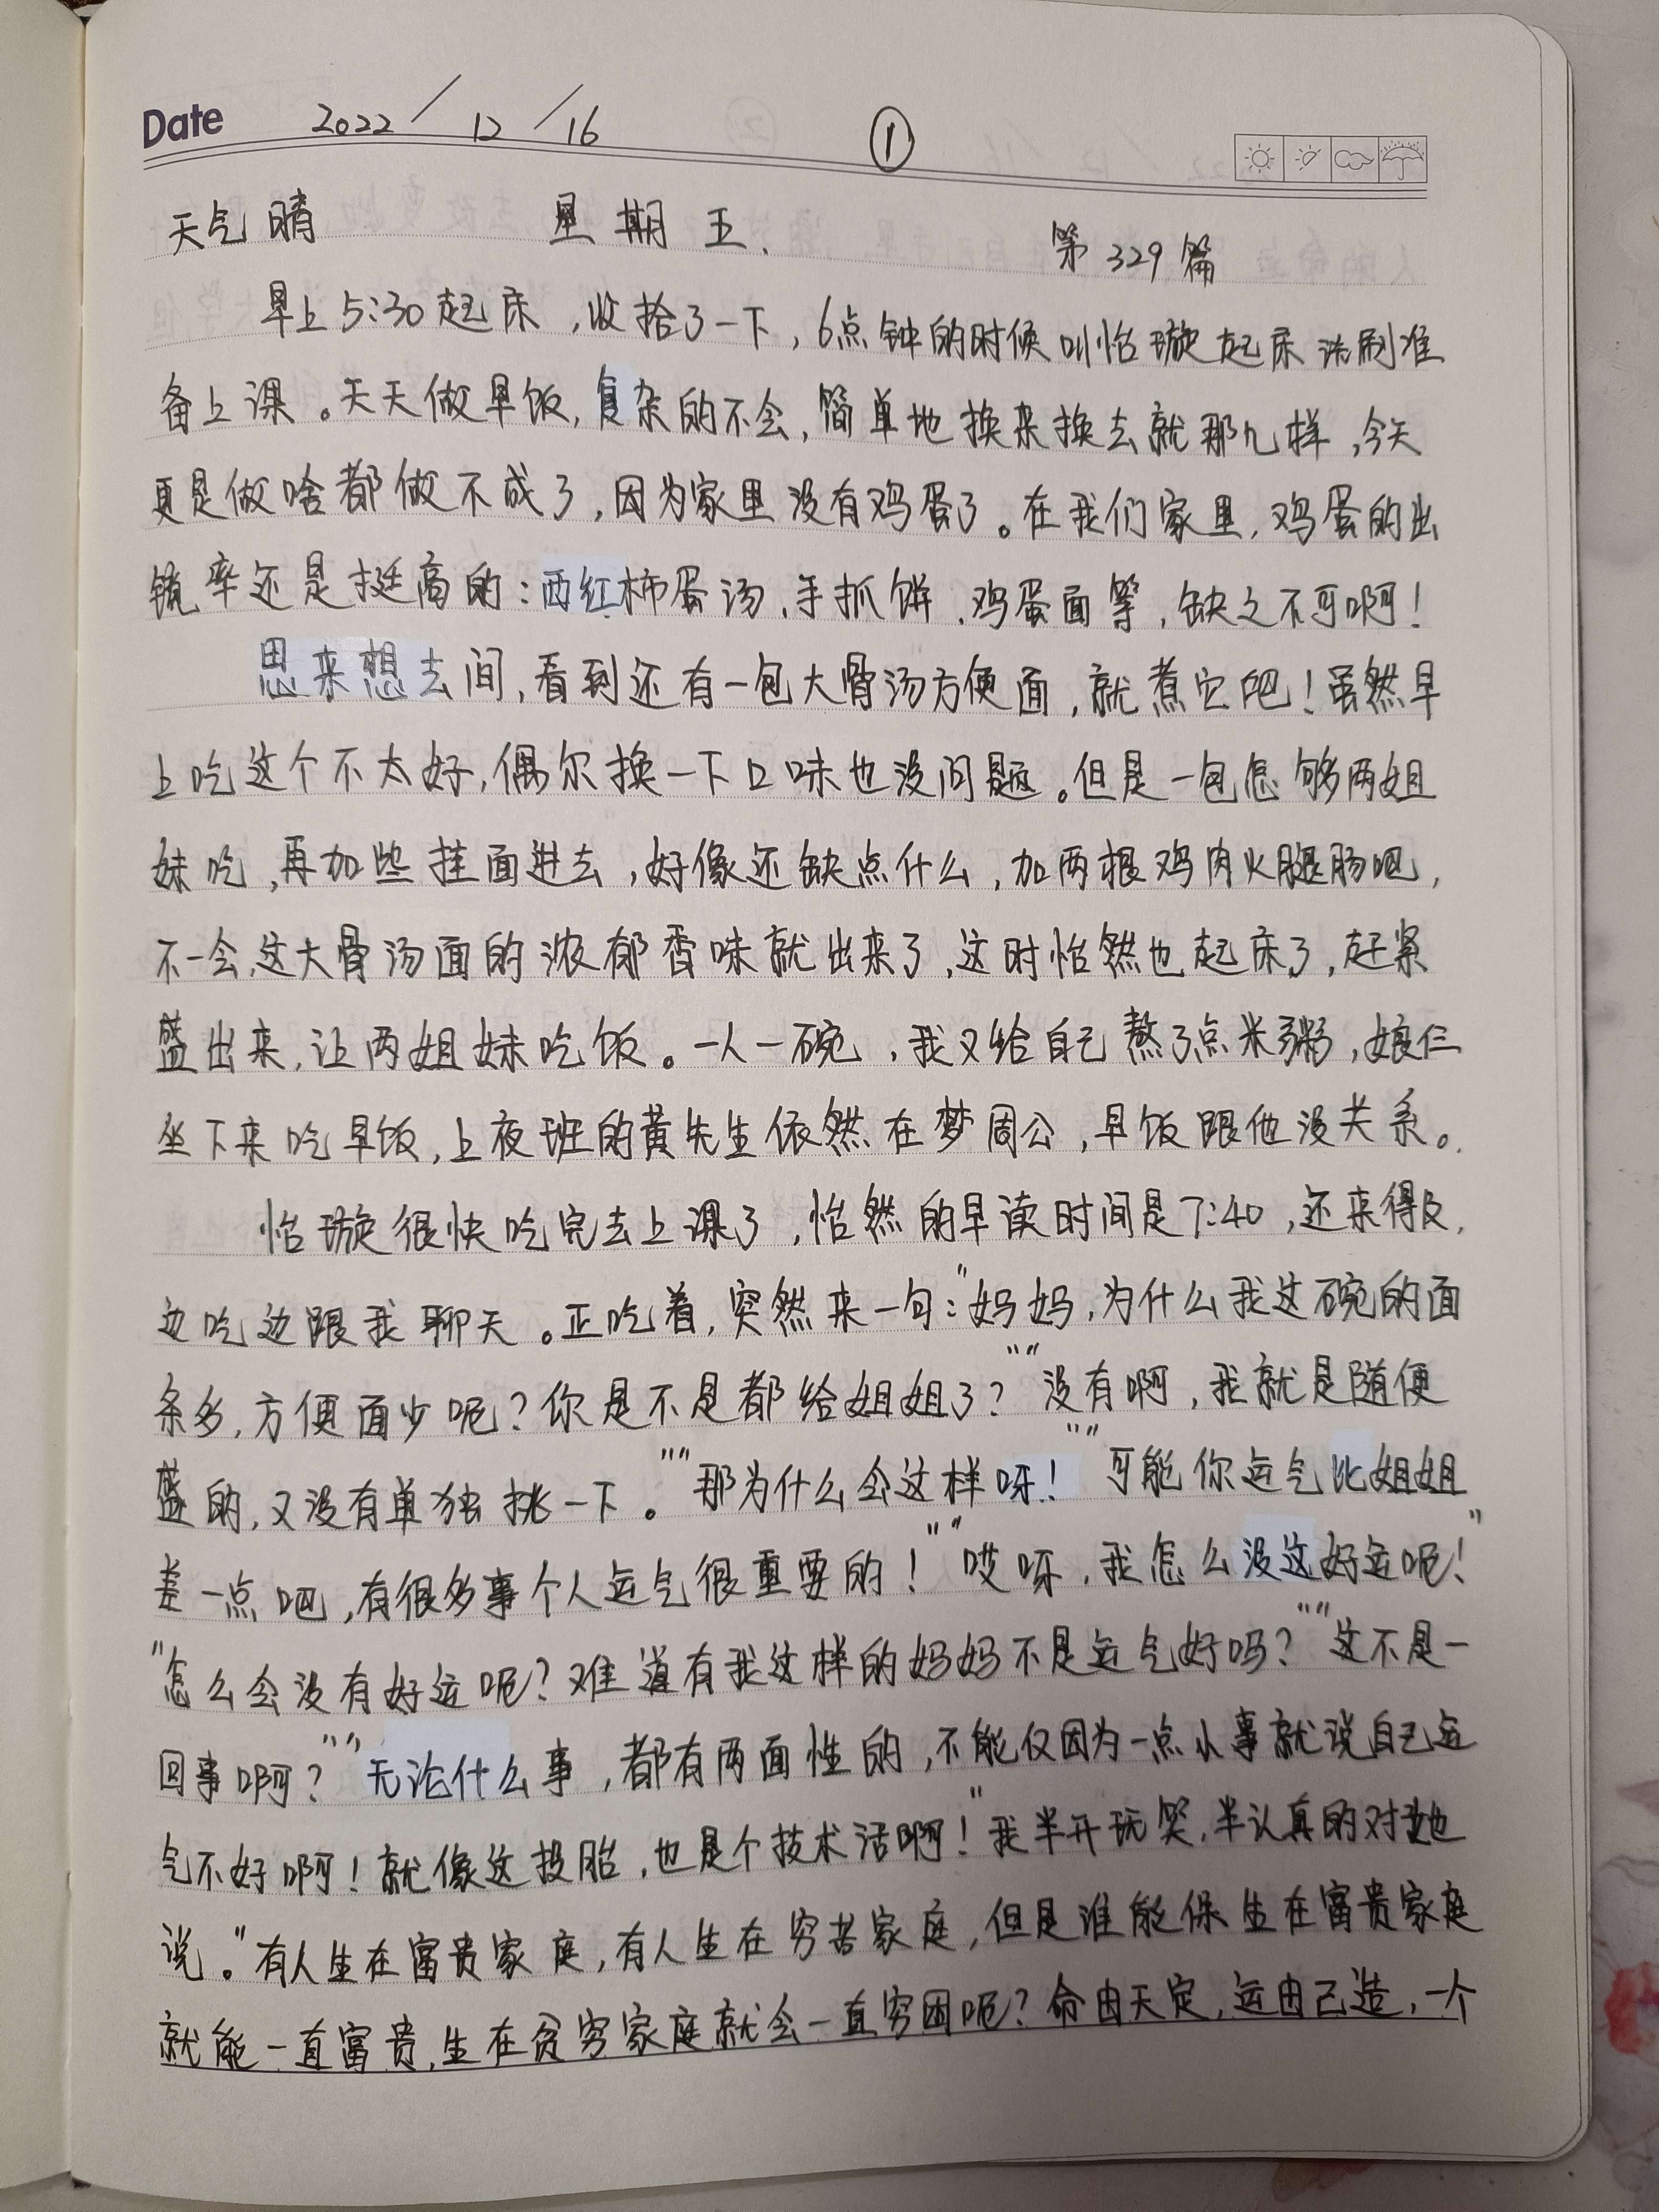 Date 2022/12/16 ①
天气晴 星期五. 第329篇
早上5:30起床,收拾了一下,6点钟的时候叫怡璇起床洗刷准
备上课。天天做早饭,复杂的不会,简单地换来换去就那几样,今天
更是做啥都做不成了,因为家里没有鸡蛋了。在我们家里,鸡蛋的出
镜率还是挺高的:西红柿蛋汤、手抓饼、鸡蛋面等,缺之不可啊!
思来想去间,看到还有一包大骨汤方便面,就煮它吧!虽然早
上吃这个不太好,偶尔换一下口味也没问题。但是一包怎够两姐
妹吃,再加些挂面进去,好像还缺点什么,加两根鸡肉火腿肠吧,
不一会,这大骨汤面的浓郁香味就出来了,这时怡然也起床了,赶紧
盛出来,让两姐妹吃饭。一人一碗,我又给自己熬了点米粥,娘仨
坐下来吃早饭,上夜班的黄先生依然在梦周公,早饭跟他没关系。
怡璇很快吃完去上课了,怡然的早读时间是7:40,还来得及,
边吃边跟我聊天。正吃着,突然来一句:“妈妈,为什么我这碗的面
条多,方便面少呢?你是不是都给姐姐了?”“没有啊,我就是随便
盛的,又没有单独挑一下。”“那为什么会这样呀!”“可能你运气比姐姐
差一点吧,有很多事个人运气很重要的!”“哎呀,我怎么没这好运呢!”
“怎么会没有好运呢?难道有我这样的妈妈不是运气好吗?”“这不是一
回事啊?”“无论什么事,都有两面性的,不能仅因为一点小事就说自己运
气不好啊!就像这投胎,也是个技术活啊!”我半开玩笑,半认真的对她
说。“有人生在富贵家庭,有人生在穷苦家庭,但是谁能保生在富贵家庭
就能一直富贵,生在贫穷家庭就会一直穷困呢?命由天定,运由己造,一个